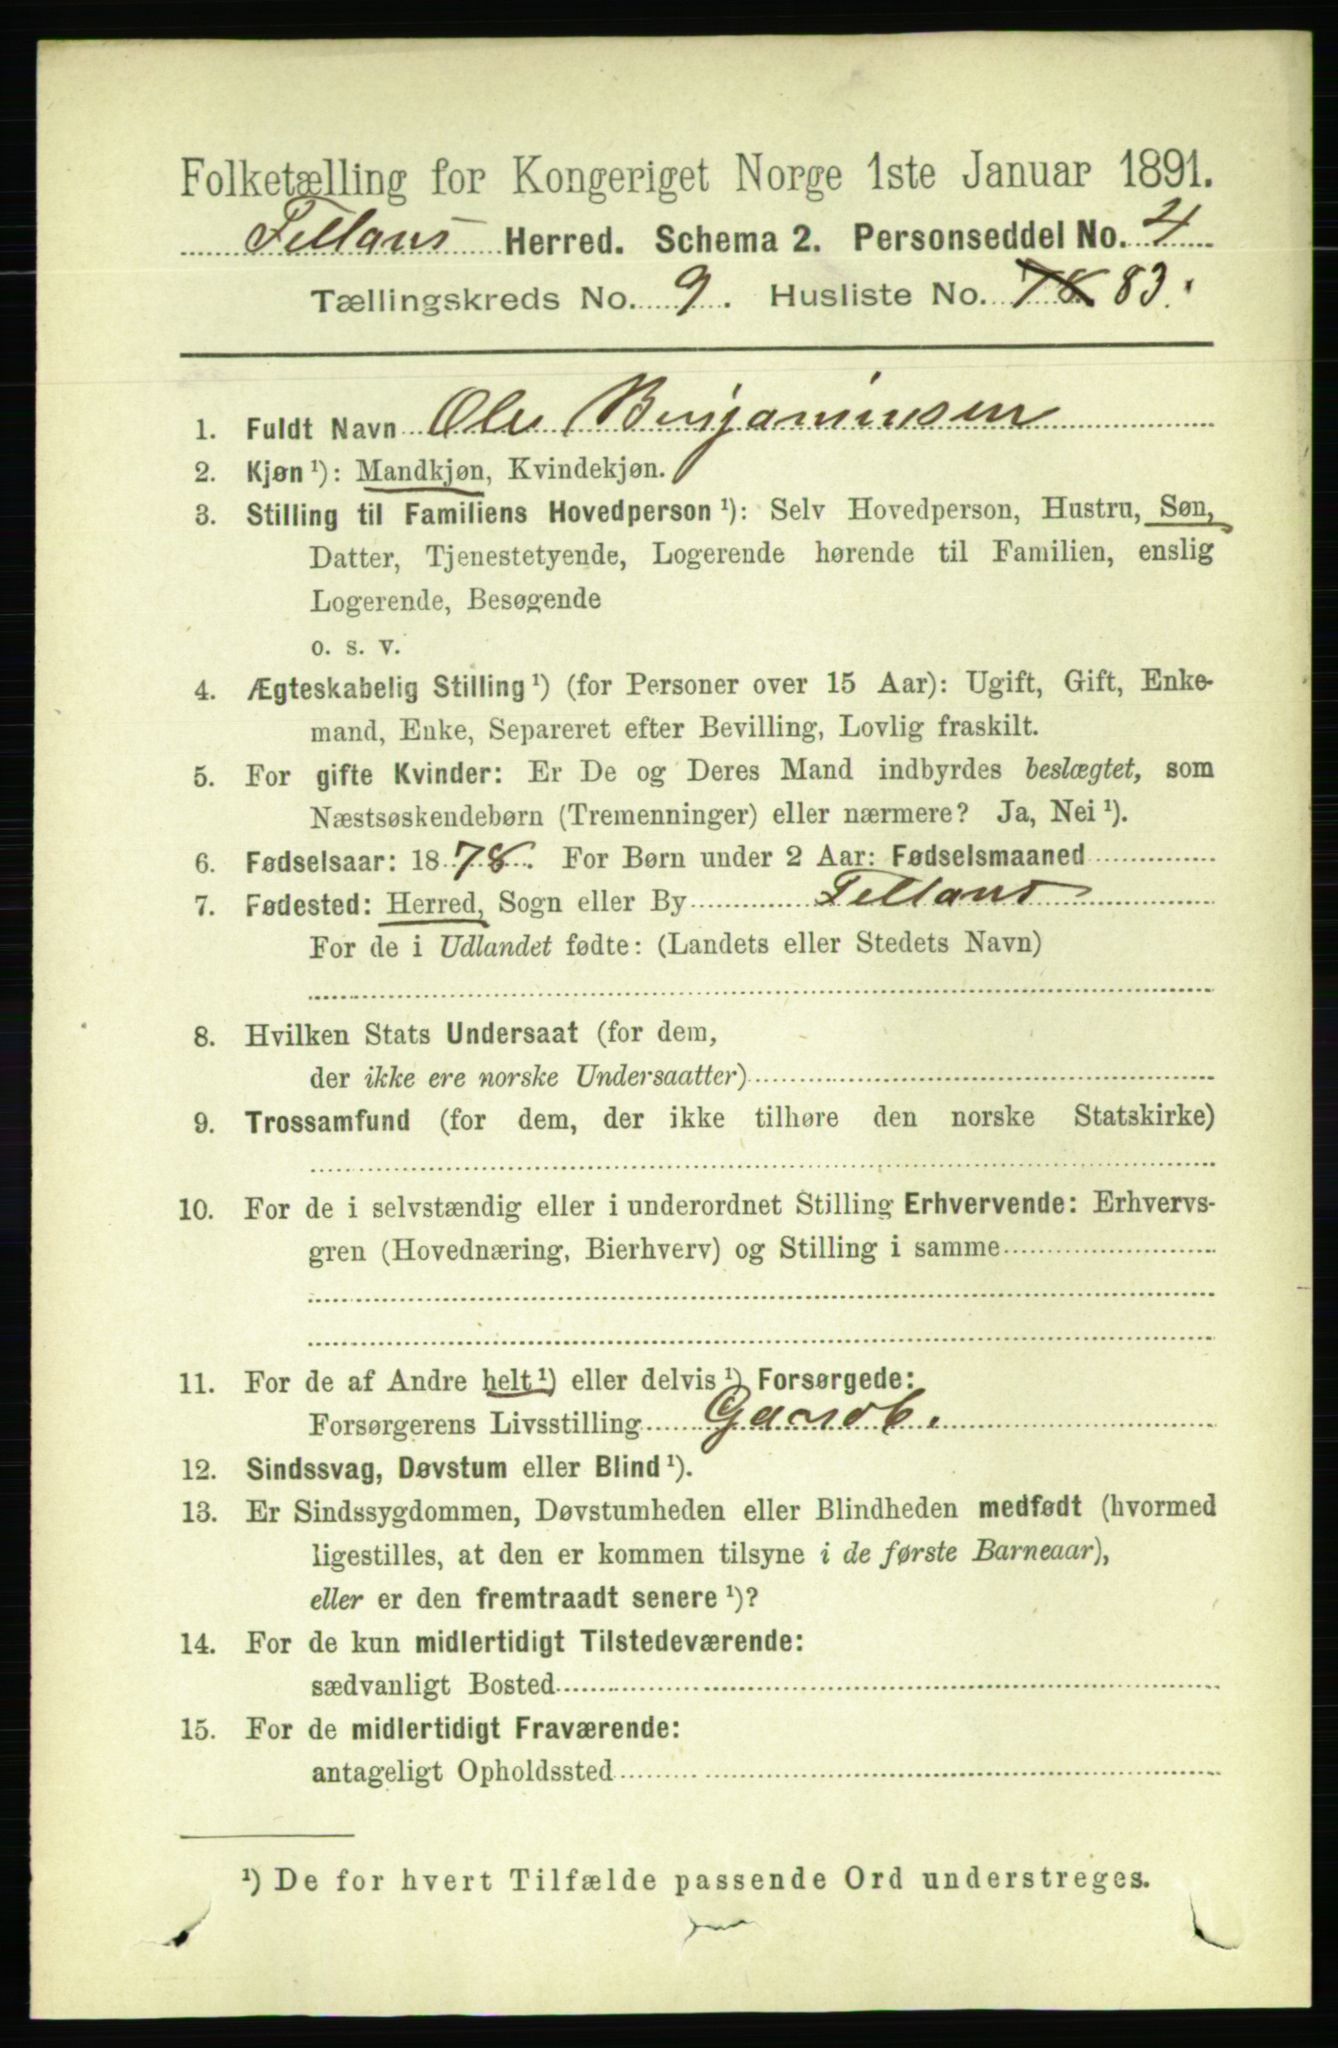 Folketælling for Kongeriget Norge 1ste Januar 1891.
Fillans Herred. Schema 2. Personseddel No. 4
Tællingskreds No. 9. Husliste No. 78 83.
1. Fuldt Navn Ole Benjaminsen
2. Kjøn ¹): Mandkjøn, Kvindekjøn.
3. Stilling til Familiens Hovedperson ¹): Selv Hovedperson, Hustru, Søn,
Datter, Tjenestetyende, Logerende hørende til Familien, enslig
Logerende, Besøgende
o. s. v.
4. Ægteskabelig Stilling ¹) (for Personer over 15 Aar): Ugift, Gift, Enke-
mand, Enke, Separeret efter Bevilling, Lovlig fraskilt.
5. For gifte Kvinder: Er De og Deres Mand indbyrdes beslægtet, som
Næstsøskendebørn (Tremenninger) eller nærmere? Ja, Nei ¹).
6. Fødselsaar: 1878. For Børn under 2 Aar: Fødselsmaaned
7. Fødested: Herred, Sogn eller By Fillans
For de i Udlandet fødte: (Landets eller Stedets Navn)
8. Hvilken Stats Undersaat (for dem,
der ikke ere norske Undersaatter)
9. Trossamfund (for dem, der ikke tilhøre den norske Statskirke)
10. For de i selvstændig eller i underordnet Stilling Erhvervende: Erhvervs-
gren (Hovednæring, Bierhverv) og Stilling i samme
11. For de af Andre helt ¹) eller delvis ¹) Forsørgede:
Forsørgerens Livsstilling
12. Sindssvag, Døvstum eller Blind ¹).
13. Er Sindssygdommen, Døvstumheden eller Blindheden medfødt (hvormed
ligestilles, at den er kommen tilsyne i de første Barneaar),
eller er den fremtraadt senere ¹)?
14. For de kun midlertidigt Tilstedeværende:
sædvanligt Bosted
15. For de midlertidigt Fraværende:
antageligt Opholdssted
¹) De for hvert Tilfælde passende Ord understreges.